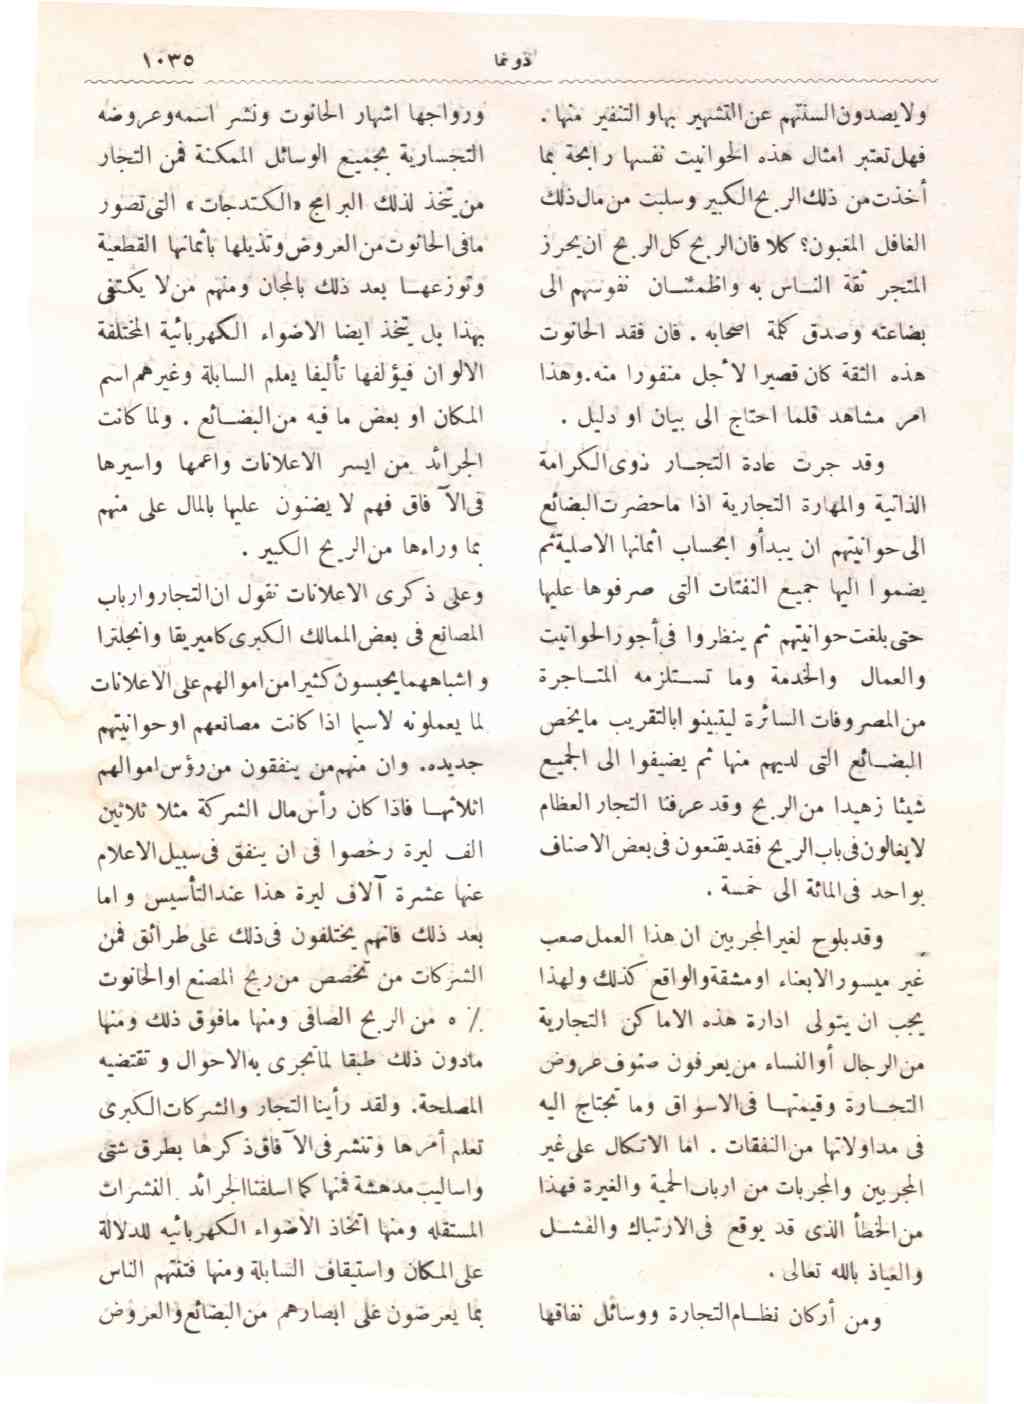 ١٠٣٥
دونما
ولا يصدون السنتهم عن التشهير بها والتنفير منها .
فهل تعتبر امثال هذه الحوانيت نفسها رابحة بما
أخذت من ذلك الربح الكبير وسلبت من مال ذلك
الغافل المغبون؟ كلا فان الربح كل الربح ان يحرز
المتجر ثقة الناس به واطمئنان نفوسهم الى
بضاعته وصدق كلمة اصحابه . فان فقد الحانوت
هذه الثقة كان قصيرا لأجل منفورا منه . وهذا
امر مشاهد قلما احتاج الى بيان او دليل .
وقد جرت عادة التجار ذوى الكرامة
الذاتية والمهارة التجارية اذا ما حضرت البضائع
الى حوانيتهم ان يبدأوا بحساب اثمانها الاصلية ثم
يضموا اليها جميع النفقات التى صرفوها عليها
حتى بلغت حوانيتهم ثم ينظروا فى أجور الحوانيت
والعمال والخدمة وما تستلزمه المتاجرة
من المصروفات السائرة ليتبينوا بالتقريب ما يخص
البضائع التى لديهم منها ثم يضيفوا الى الجميع
شيئا زهيدا من الربح وقد عرفنا التجار العظام
لا يغالون فى باب الربح فقد يقنعون فى بعض الاصناف
بواحد فى المائة الى خمسة .
وقد يلوح لغير المجربين ان هذا العمل صعب
غير ميسور الا بعناء او مشقة والواقع كذلك ولهذا
يجب ان يتولى ادارة هذه الاماكن التجارية
من الرجال أو النساء من يعرفون صنوف عروض
التجارة وقيمتها فى الاسواق وما تحتاج اليه
فى مداولاتها من النفقات . اما الاتكال على غير
المجربين والمجربات من ارباب الحمية والغيرة فهذا
من الخطأ الذى قد يوقع فى الارتباك والفشل
والعياذ بالله تعالى .
ومن أركان نظام التجارة ووسائل نفاقها
ورواجها اشهار الحانوت ونشر اسمه وعروضه
التجارية بجميع الوسائل الممكنة فمن التجار
من يتخذ لذلك البرامج «الكتدجات» التى تصور
ما فى الحانوت من العروض وتذيلها باثمانها القطعية
وتوزعها بعد ذلك بالمجان ومنهم من لا يكتفى
بهذا بل يتخذ ايضا الاضواء الكهربائية المختلفة
الالوان فيؤلفها تأليفا يعلم السابلة وغيرهم اسم
المكان او بعض ما فيه من البضائع . ولما كانت
الجرائد من ايسر الاعلانات واعمها واسيرها
فى الآفاق فهم لا يضنون عليها بالمال على منهم
بما وراءها من الربح الكبير .
وعلى ذكرى الاعلانات نقول ان التجار وارباب
المصانع فى بعض الممالك الكبرى كاميريقا وانجلترا
واشباههما يحبسون كثيرا من اموالهم على الاعلانات
لما يعملونه لاسيما اذا كانت مصانعهم او حوانيتهم
جديده. وان منهم من ينفقون من رؤس اموالهم
اثلاثها فاذا كان رأس مال الشركة مثلا ثلاثين
الف ليرة رخصوا فى ان ينفق فى سبيل الاعلام
عنها عشرة آلاف ليرة هذا عند التأسيس واما
بعد ذلك فانهم يختلفون فى ذلك على طرائق فمن
الشركات من تخصص من ربح المصنع او الحانوت
٪ ٥ من الربح الصافى ومنها ما فوق ذلك ومنها
ما دون ذلك طبقا لما تجرى به الاحوال و تقتضيه
المصلحة. ولقد رأينا التجار والشركات الكبرى
تعلم أمرها وتنشر فى الآفاق ذكرها بطرق شتى
واساليب مدهشة فمنها كما اسلفنا الجرائد النشرات
المستقله ومنها اتخاذ الاضواء الكهربائيه للدلالة
على المكان واستيقاف السابلة ومنها فتنتهم الناس
بما يعرضون على ابصارهم من البضائع والعروض